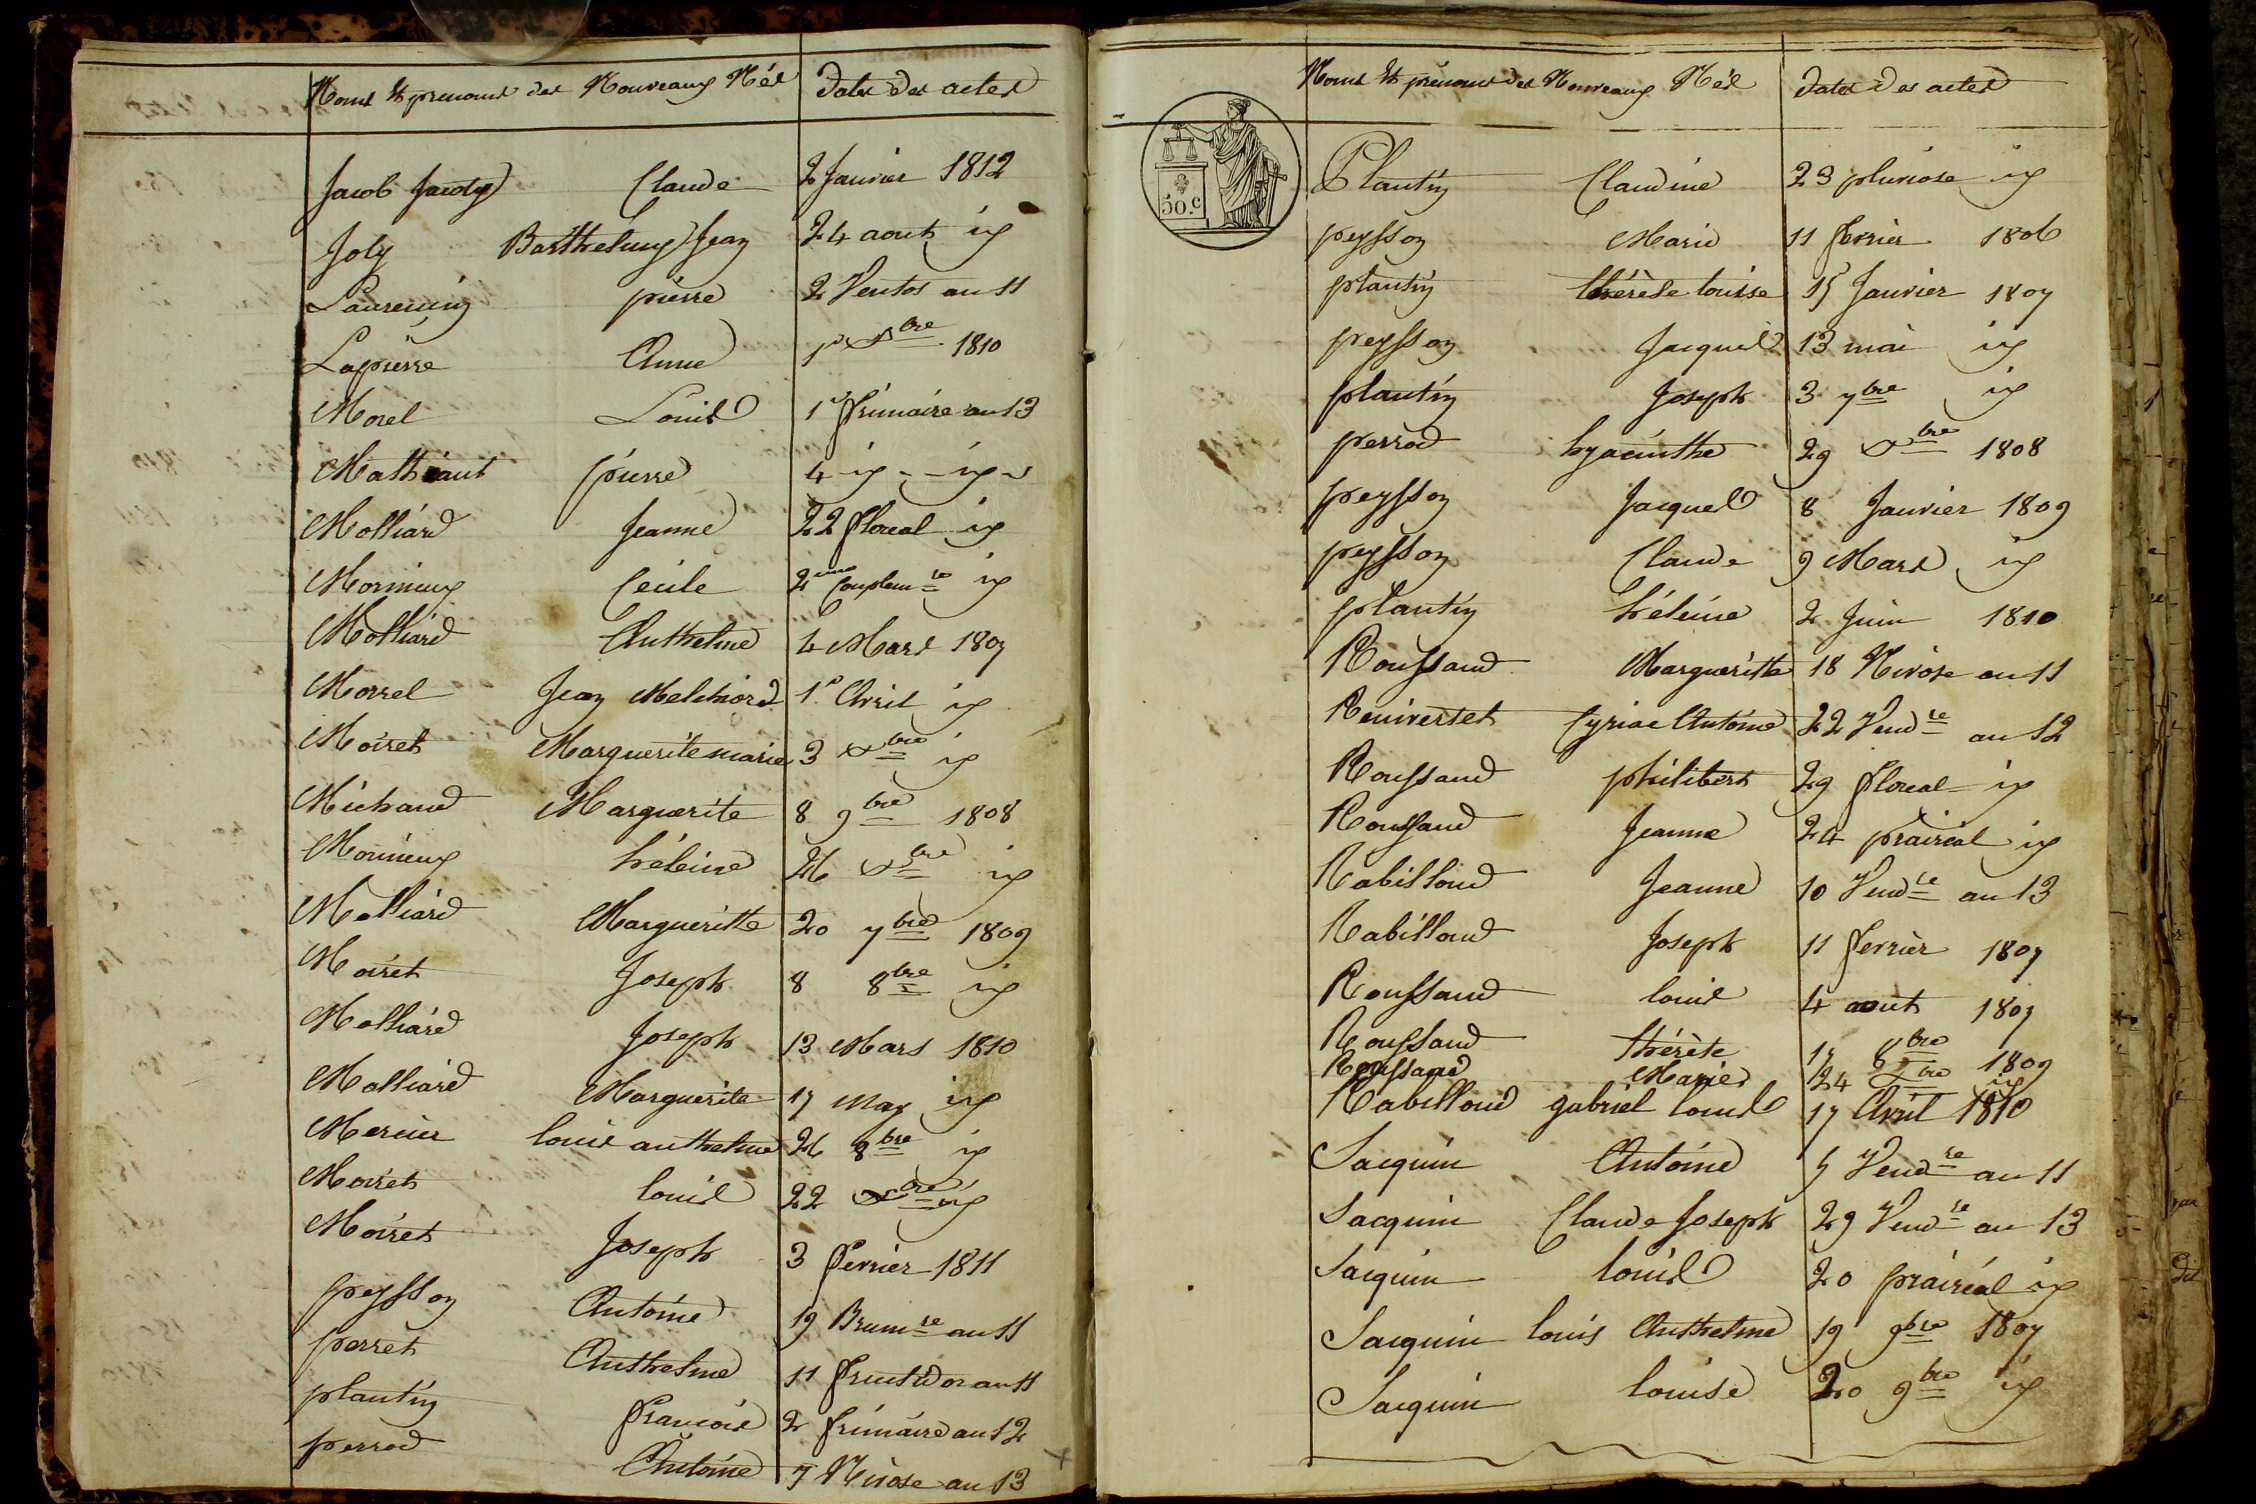 Noms et prenoms des Nouveaux Nés Dates des actes
Jacob Claude 2 Janvier 1812
Joly Barthelemy Jean 24 aout id
Laurencin pierre 2 Ventos an 11
Lapierre Anne 1er Xbre 1810
Morel Louis 1er frimaire an 13
Mathiaut pierre 4 id - id
Molliard Jeanne 22 floreal id
Mornieux Cécile 2eme Complemre id
Molliard Anthelme 4 Mars 1807
Morrel Jean Melchiord 1er Avril id
Moiret Marguerite marie 3 Xbre id
Michaud Marguerite 8 9bre 1808
Mornieux héleine 26 Xbre id
Molliard Margueritte 20 7bre 1809
Moiret Joseph 8 8bre id
Molliard Joseph 13 Mars 1810
Molliard Marguerite 17 May id
Mercier louis anthelme 26 8bre id
Moiret louis 22 Xbre id
Moiret Joseph 3 fevrier 1811
peysson Antoine 19 Brumre an 11
perret Anthelme 11 fructidor an 11
plantin francois 2 frimaire an 12
perrod Antoine 7 Nivose an 13
Noms et prénoms des Nouveaux Nés Dates des actes
50.c
Plantin Claudine 23 pluviose id
peysson Marie 11 fevrier 1806
plantin thérèse louise 15 Janvier 1807
peysson Jacques 13 mai id
plantin Joseph 3 7bre id
perrod hyacinthe 29 Xbre 1808
peysson Jacques 8 Janvier 1809
peysson Claude 9 Mars id
plantin héleine 2 Juin 1810
Roussaud Margueritte 18 Nivose an 11
Reniverset Cyriac Antoine 22 Vendre an 12
Roussaud philibert 29 floreal id
Roussaud Jeanne 24 prairéal id
Rabilloud Jeanne 10 Vendre an 13
Rabilloud Joseph 11 fevrier 1807
Roussaud louis 4 aout 1807
Roussaud thérèse 17 8bre 1809
Roussaud Marie 24 Xbre id
Rabilloud gabriel louis 17 Avril 1810
Sacquin Antoine 5 Vendre an 11
Sacquin Claude Joseph 29 Vendre an 13
Sacquin louis 20 prairéal id
Sacquin louis Anthelme 19 9bre 1807
Sacquin louise 20 9bre id